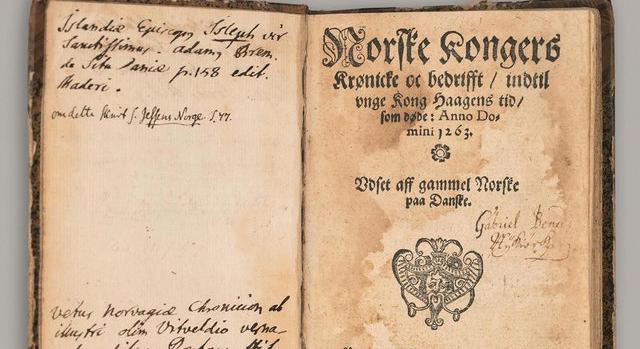 Islandiæ Episcop. Isleph vir
Sanctissimus. Adam. Brem.
de Situ Daniæ p. 158 edit.
Maderi.
om dette skrift s. Jessens Norge. S. 77.
vetus Norvagiæ Chronicion ab
illustri olim Vitveldio verna-
Norske Kongers
Krønicke oc bedrifft / indtil
vnge Kong Haagens tid /
som døde: Anno Do-
mini 1263.
Vdset aff gammel Norske
paa Danske.
Gabriel